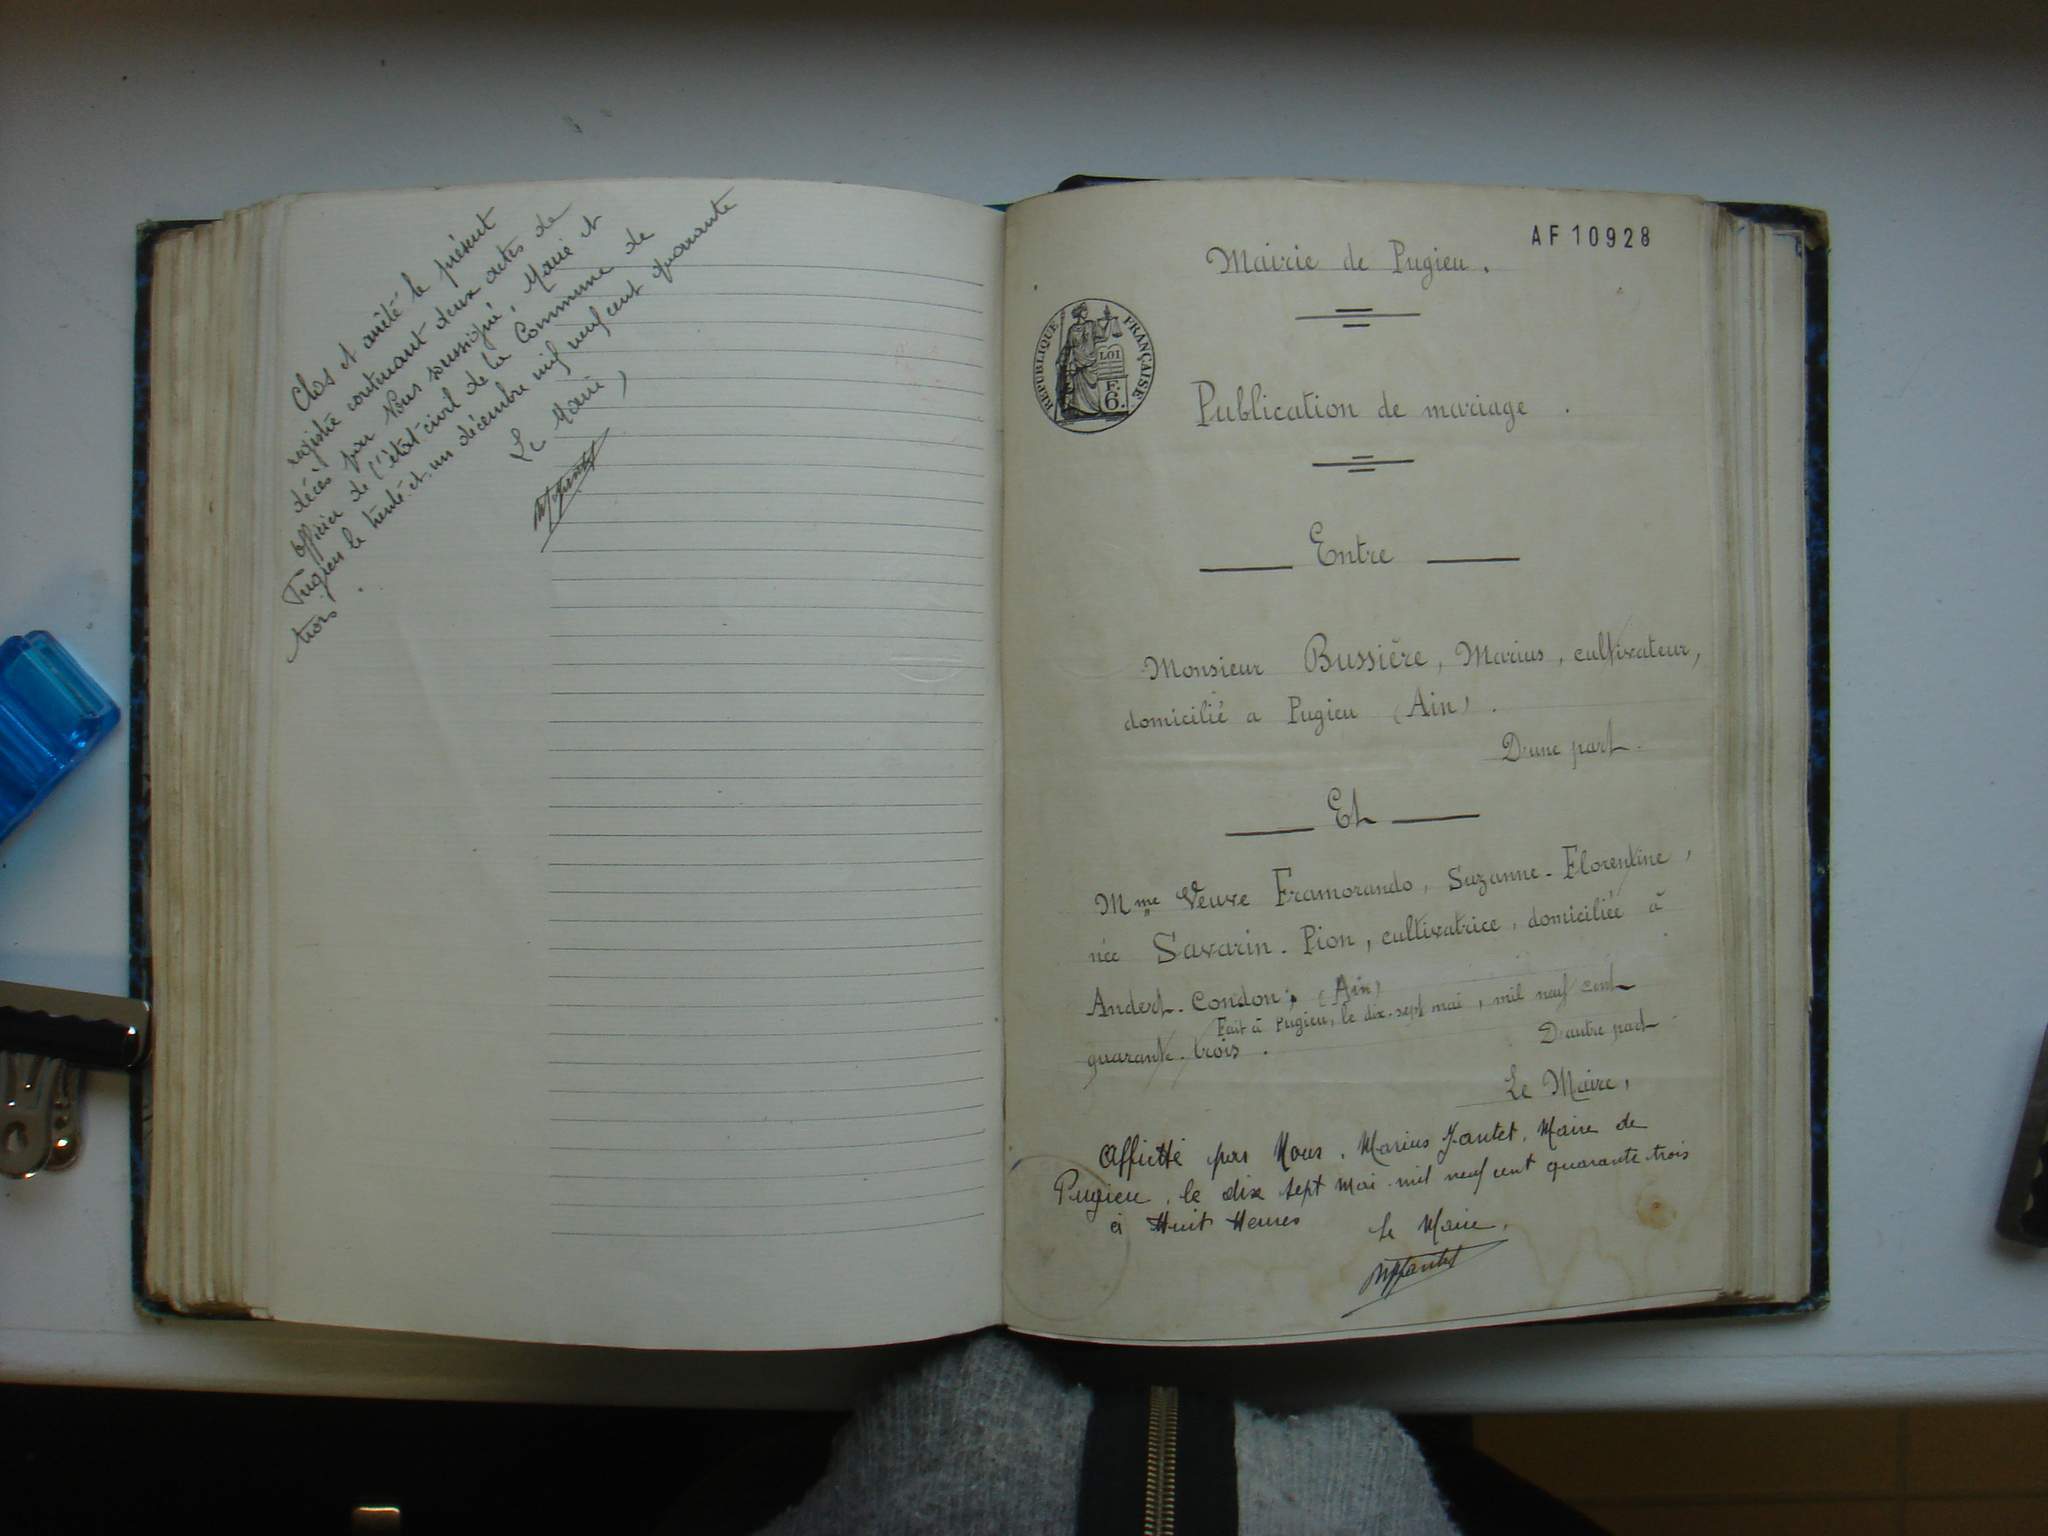 Clos et arrêté le présent
registre contenant deux actes de
décès par Nous soussigné, Maire et
officier de l'état-civil de la Commune de
Pugieu le trente-et-un décembre mil neuf cent quarante
trois.
Le Maire,
AF10928
Mairie de Pugieu.
REPUBLIQUE FRANÇAISE
LOI
F.
6.
Publication de mariage.
Entre
Monsieur Bussière, Marius, cultivateur,
domicilié a Pugieu (Ain).
D'une part.
Et
Mme Veuve Framorando, Suzanne-Florentine,
née Savarin-Pion, cultivatrice, domiciliée à
Andert-Condon; (Ain)
Fait à Pugieu, le dix-sept mai, mil neuf cent
quarante-trois.
D'autre part
Le Maire,
Affiché par Nous, Marius Jantet, Maire de
Pugieu, le dix sept Mai mil neuf cent quarante-trois
à Huit Heures
Le Maire,